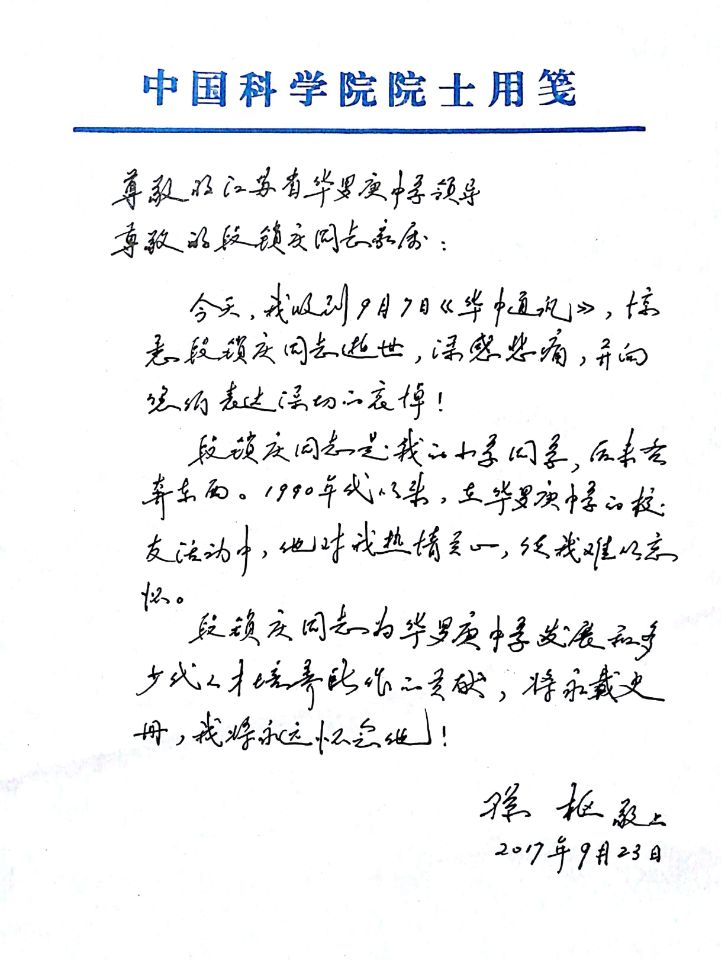 中国科学院院士用笺
尊敬的江苏省华罗庚中学领导
尊敬的段锁庆同志亲属：
今天，我收到9月7日《华中通讯》，惊
悉段锁庆同志逝世，深感悲痛，并向
您们表达深切的哀悼！
段锁庆同志是我的小学同学，后来各
奔东西。1990年代以来，在华罗庚中学的校
友活动中，他对我热情关心，使我难以忘
怀。
段锁庆同志为华罗庚中学发展和多
少代人才培养所作的贡献，将永载史
册，我将永远怀念他！
孙枢敬上
2017年9月23日